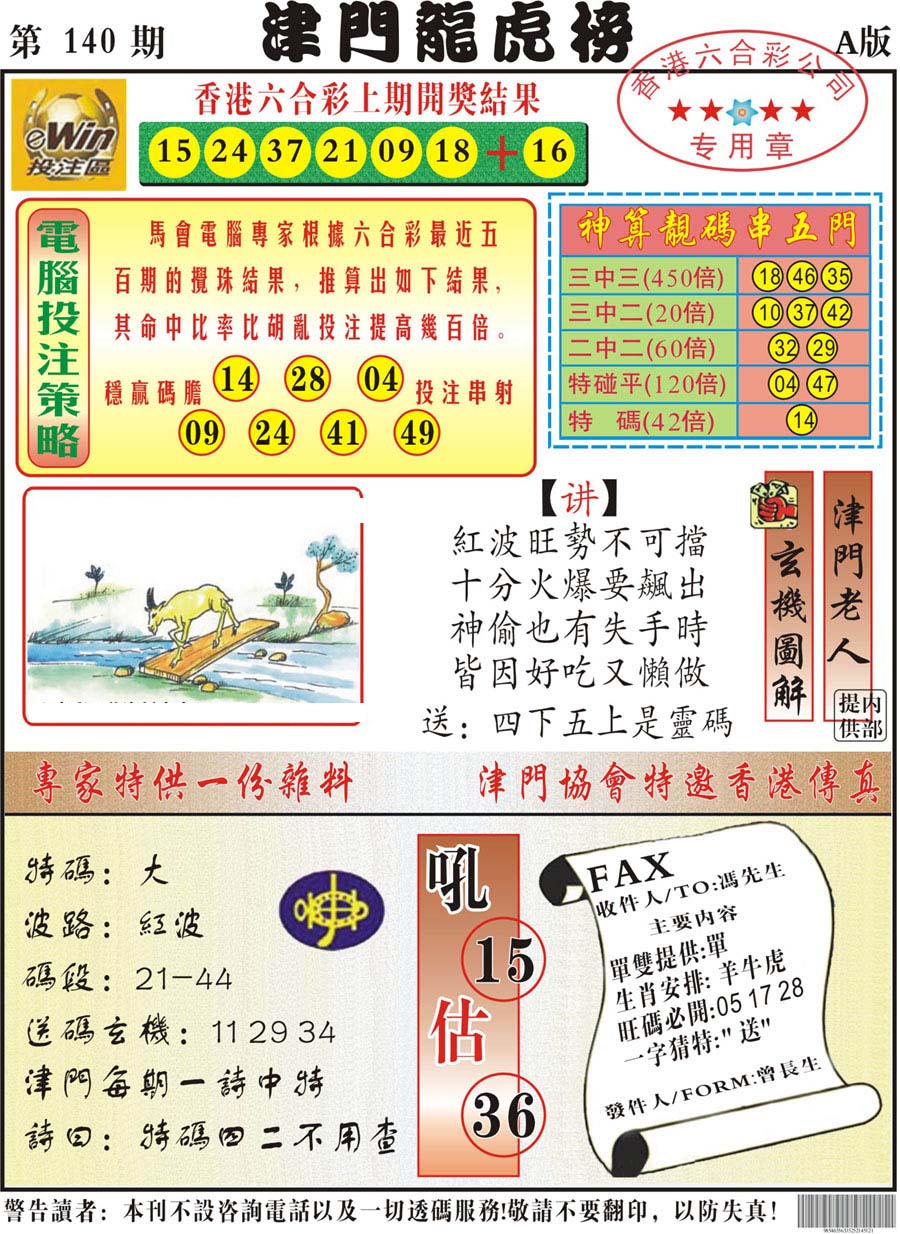 第 140 期
津門龍虎榜
A版
eWin
投注區
香港六合彩上期開獎結果
15 24 37 21 09 18 + 16
香港六合彩公司
★★★★
专用章
電腦投注策略
馬會電腦專家根據六合彩最近五
百期的攪珠結果，推算出如下結果，
其命中比率比胡亂投注提高幾百倍。
穩贏碼膽 14 28 04 投注串射
09 24 41 49
神算靚碼串五門
三中三(450倍) 18 46 35
三中二(20倍) 10 37 42
二中二(60倍) 32 29
特碰平(120倍) 04 47
特 碼(42倍) 14
【讲】
紅波旺勢不可擋
十分火爆要飆出
神偷也有失手時
皆因好吃又懶做
送：四下五上是靈碼
玄機圖解
津門老人
内部提供
專家特供一份雜料
津門協會特邀香港傳真
特碼：大
波路：紅波
碼段：21-44
送碼玄機：11 29 34
津門每期一詩中特
詩曰：特碼四二不用查
吼
15
估
36
FAX
收件人/TO:馮先生
主要内容
單雙提供:單
生肖安排: 羊牛虎
旺碼必開:05 17 28
一字猜特:"送"
發件人/FORM:曾長生
警告讀者：本刊不設咨詢電話以及一切透碼服務!敬請不要翻印，以防失真！